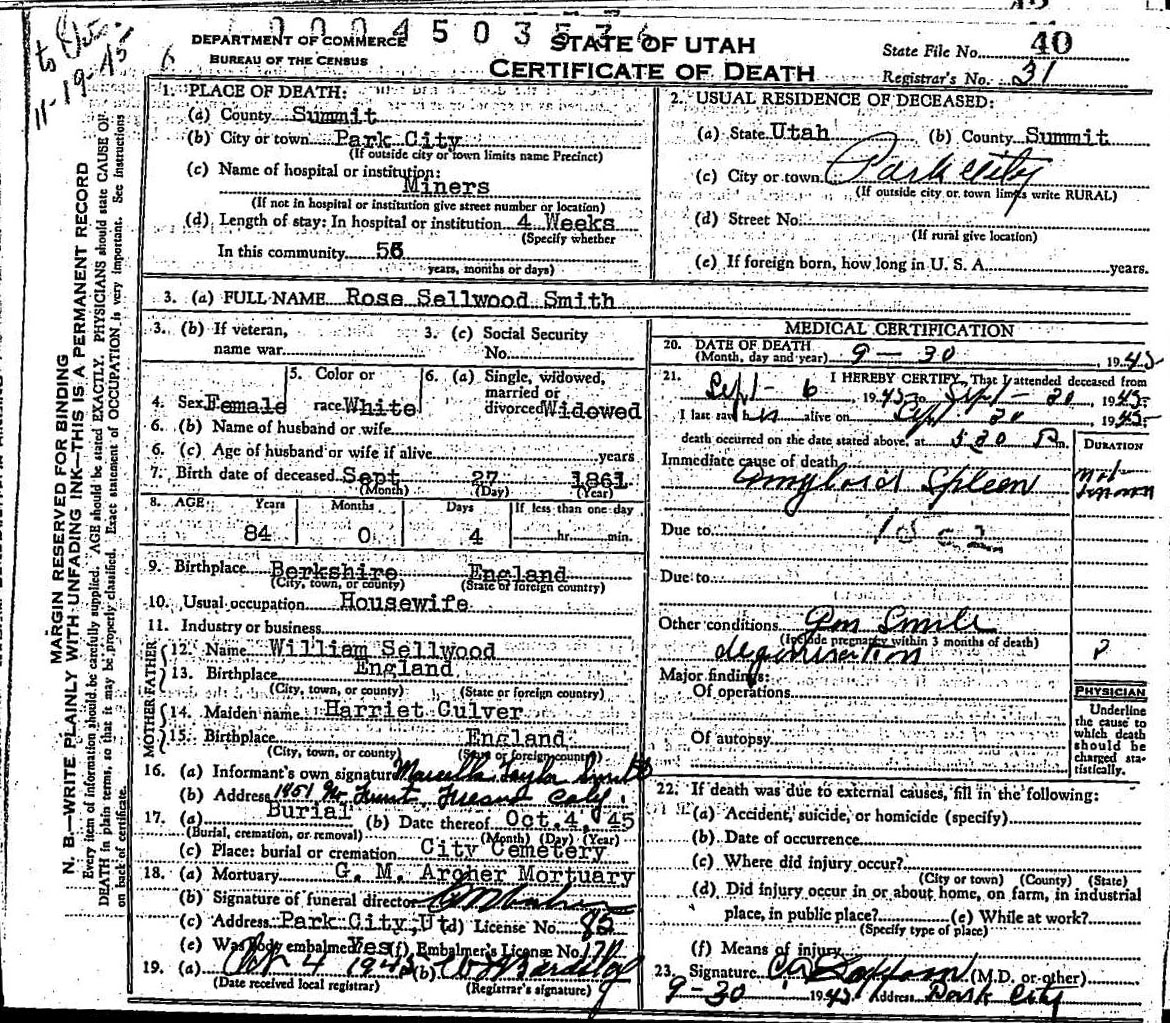 to
11-19-45
00045035
DEPARTMENT OF COMMERCE
BUREAU OF THE CENSUS
STATE OF UTAH
CERTIFICATE OF DEATH
State File No. 40
Registrar's No. 31
MARGIN RESERVED FOR BINDING
N. B.—WRITE PLAINLY WITH UNFADING INK—THIS IS A PERMANENT RECORD
Every item of information should be carefully supplied. AGE should be stated EXACTLY. PHYSICIANS should state CAUSE OF
DEATH in plain terms, so that it may be properly classified. Exact statement of OCCUPATION is very important. See Instructions
on back of certificate.
1. PLACE OF DEATH:
(a) County Summit
(b) City or town Park City
(If outside city or town limits name Precinct)
(c) Name of hospital or institution:
Miners
(If not in hospital or institution give street number or location)
(d) Length of stay: In hospital or institution 4 Weeks
(Specify whether
In this community
years, months or days)
2. USUAL RESIDENCE OF DECEASED:
(a) State Utah (b) County Summit
(c) City or town Park City
(If outside city or town limits write RURAL)
(d) Street No.
(If rural give location)
(e) If foreign born, how long in U. S. A. years.
3. (a) FULL NAME Rose Sellwood Smith
3. (b) If veteran, name war
3. (c) Social Security No.
4. Sex Female
5. Color or race White
6. (a) Single, widowed, married or divorced Widowed
6. (b) Name of husband or wife
6. (c) Age of husband or wife if alive years
7. Birth date of deceased Sept 27 1861
(Month) (Day) (Year)
8. AGE: Years Months Days If less than one day
84 0 4 hr. min.
9. Birthplace Berkshire England
(City, town, or county) (State or foreign country)
10. Usual occupation Housewife
11. Industry or business
FATHER
12. Name William Sellwood
13. Birthplace England
(City, town, or county) (State or foreign country)
MOTHER
14. Maiden name Harriet Culver
15. Birthplace England
(City, town, or county) (State or foreign country)
16. (a) Informant's own signature Marcella Taylor Smith
(b) Address 1451 Fresno Calif.
17. (a) Burial (b) Date thereof Oct. 4, 45
(Burial, cremation, or removal) (Month) (Day) (Year)
(c) Place: burial or cremation City Cemetery
18. (a) Mortuary G. M. Archer Mortuary
(b) Signature of funeral director
(c) Address Park City, Ut (d) License No. 85
(e) Was body embalmed Yes (f) Embalmer's License No.
19. (a) Oct 4 1945 (b)
(Date received local registrar) (Registrar's signature)
MEDICAL CERTIFICATION
20. DATE OF DEATH
(Month, day and year) 9-30, 1945
21. I HEREBY CERTIFY, That I attended deceased from
Sept - 6 1945 to Sept - 30, 1945
I last saw her alive on Sept 30 1945
death occurred on the date stated above, at 5 30 P m.
DURATION
Immediate cause of death
Amyloid Spleen
Not known
Due to
Due to
Other conditions Gen Senile
(Include pregnancy within 3 months of death)
degeneration
?
Major findings:
Of operations
Of autopsy
PHYSICIAN
Underline
the cause to
which death
should be
charged sta-
tistically.
22. If death was due to external causes, fill in the following:
(a) Accident, suicide, or homicide (specify)
(b) Date of occurrence
(c) Where did injury occur?
(City or town) (County) (State)
(d) Did injury occur in or about home, on farm, in industrial
place, in public place? (e) While at work?
(Specify type of place)
(f) Means of injury
23. Signature (M.D. or other)
9-30 1945 Address Park City